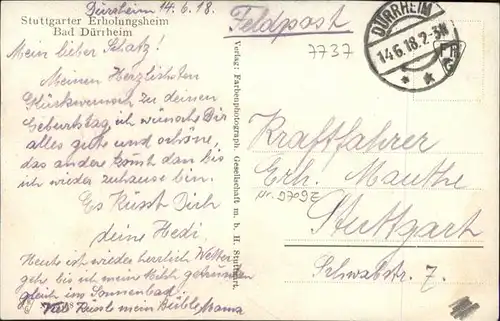 Dürrheim 14.6.18.
Stuttgarter Erholungsheim
Bad Dürrheim
Mein lieber Schatz!
Meinen Herzlichsten
Glückwunsch zu deinen
Geburtstag ich wünsche Dir
alles gute und schöne,
das andere kommt dan bis
ich wieder zuhause bin.
Es Küsst Dich
deine Hedi.
Heute ist wieder herrlich Wetter
geh bis ich mein Milch getrunken
gleich ins Sonnenbad.
Viele Küssle mein Büble Mama
Verlag: Farbenphotograph. Gesellschaft m. b. H. Stuttgart.
Feldpost
7737
DÜRRHEIM
14.6.18.2-3N
Kraftfahrer
Erh. Mauthe
Nr. 9709E
Stuttgart
Schwabstr. 7.